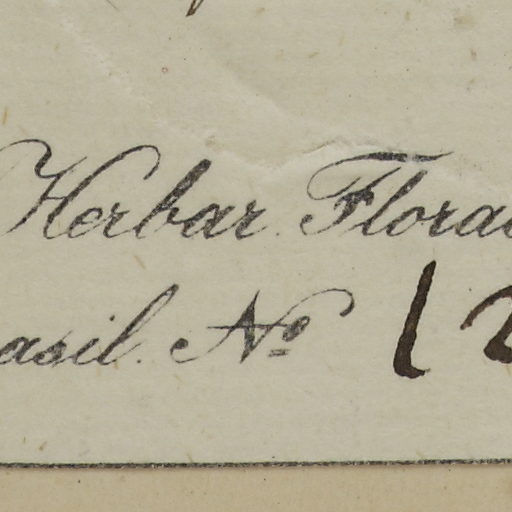 Herbar. Florae
asil. Nº 12